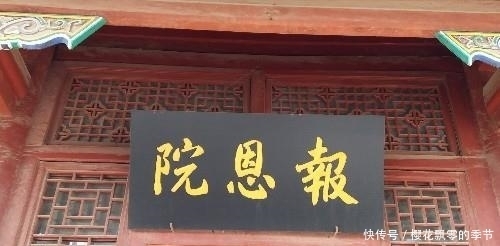 報恩院
快传号/樱花飘零的季节